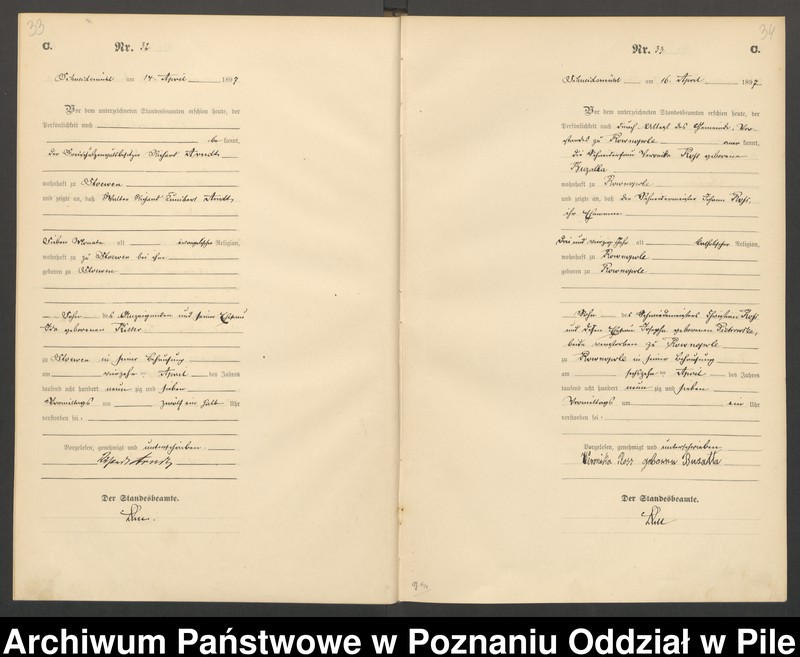 33
C.
Nr. 32
Schneidemühl am 14. April 1897
Vor dem unterzeichneten Standesbeamten erschien heute, der
Persönlichkeit nach
be kannt,
der Richard Arndt
wohnhaft zu Stoewen
und zeigte an, daß Walter Richard Arndt,
Sieben Monate alt evangelischer Religion,
wohnhaft zu Stoewen bei ihm
geboren zu Stoewen
Sohn des Anzeigenden und seiner Ehefrau
geborenen
zu Stoewen in seiner Behausung
am vierzehn ten April des Jahres
tausend acht hundert neun zig und sieben
Vormittags um zwölf ein halb Uhr
verstorben sei
Vorgelesen, genehmigt und unterschrieben
Arndt
Der Standesbeamte.
34
Nr. 33
C.
Schneidemühl am 16. April 1897
Vor dem unterzeichneten Standesbeamten erschien heute, der
Persönlichkeit nach durch Attest des Gemeinde-Vor-
standes zu Rownopole aner kannt,
die Schmiedefrau Veronika Roß geborene
Buzalla
wohnhaft zu Rownopole
und zeigte an, daß der Schmiedemeister Johann Roß,
ihr Ehemann
Drei und vierzig Jahr alt katholischer Religion,
wohnhaft zu Rownopole
geboren zu Rownopole
Sohn des Schmiedemeisters Roß
und dessen Ehefrau Josepha geborenen
beide verstorben zu Rownopole
zu Rownopole in seiner Behausung
am sechzehn ten April des Jahres
tausend acht hundert neun zig und sieben
Vormittags um ein Uhr
verstorben sei
Vorgelesen, genehmigt und unterschrieben
Veronika Ross geborene Busalla
Der Standesbeamte.
Archiwum Państwowe w Poznaniu Oddział w Pile